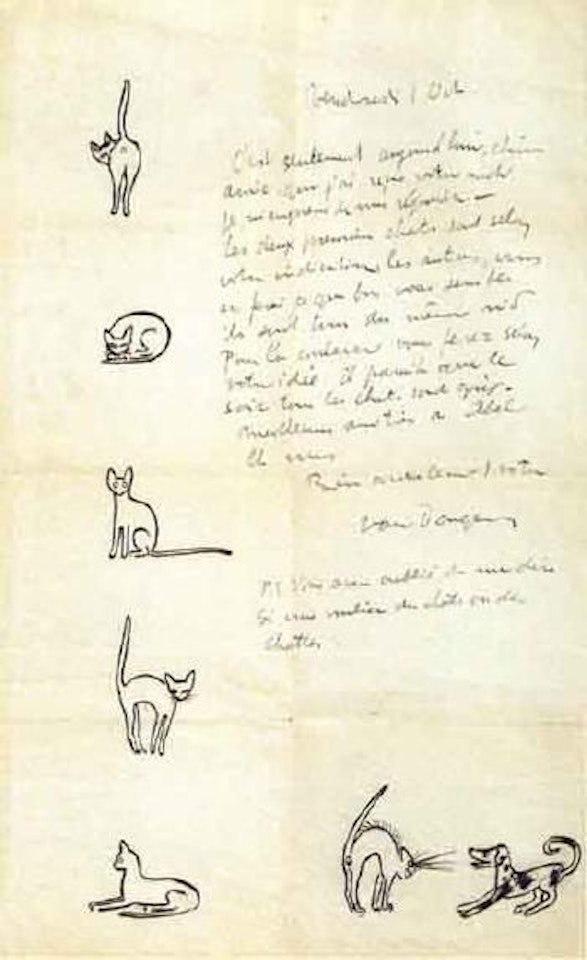 Vendredi 1 Oct.
C'est seulement aujourd'hui, chère
amie que j'ai reçu votre mot
je m'empresse de vous répondre —
Les deux premiers chats sont selon
votre indication, les autres, vous
en ferez ce que bon vous semble
ils sont tous du même
Pour la couleur vous ferez selon
votre idée il paraît que le
soir tous les chats sont gris.
meilleures amitiés a
et vous
Bien votre
Van Dongen
P.S Vous avez oublié de me dire
si vous vouliez des chats ou des
chattes